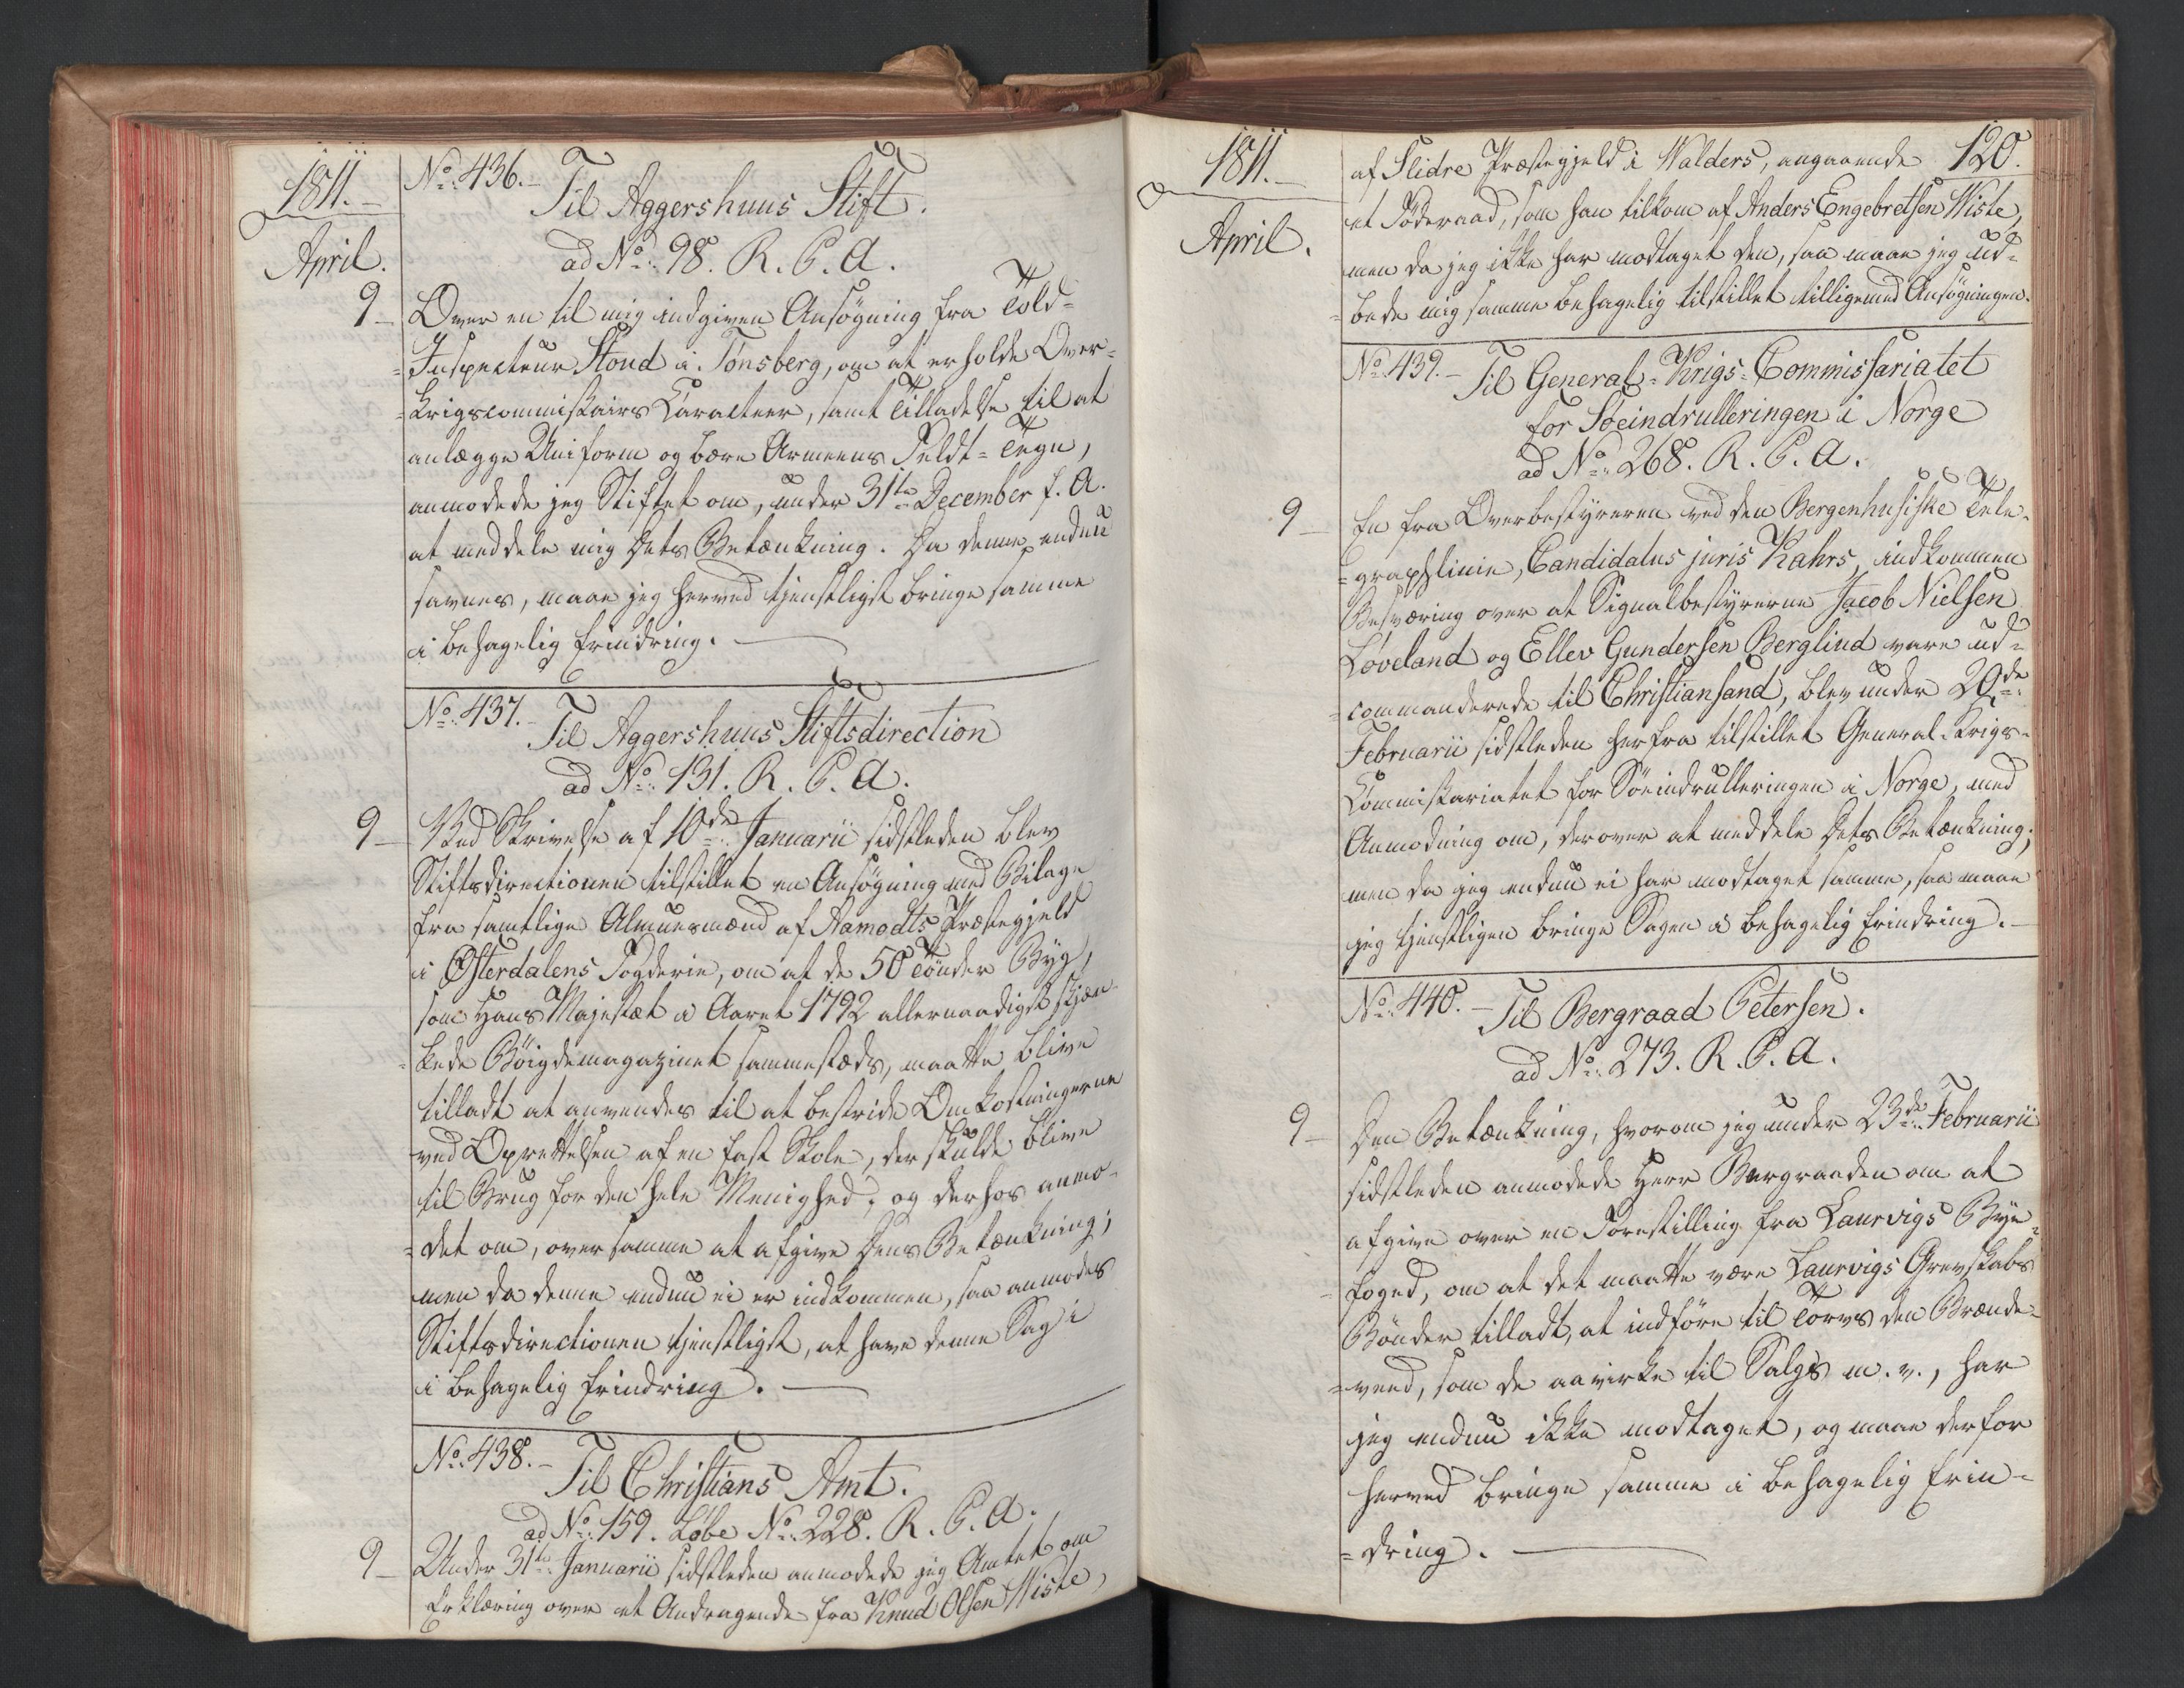 1811.
April.
No. 436. Til Aggershuus Stift.
ad No. 98. R. C. A.
9 Over en til mig indgiven Ansøgning fra Told-
=Inspecteur Stoud i Tønsberg, om at erholde Over-
=krigscommissairs Caracteer, samt Tilladelse til at
anlægge Uniform og bære Armeens Feldt-Tegn,
anmodede jeg Stiftet om, under 31te December f. A.
at meddele mig Dets Betænkning. Da denne endnu
savnes, maae jeg herved tjenstligst bringe samme
i behagelig Erindring.
No. 437. Til Aggershuus Stiftsdirection
ad No. 131. R. C. A.
9 Ved Skrivelse af 10de Januarii sidstleden blev
Stiftsdirectionen tilstillet en Ansøgning med Bilage
fra samtlige Almuesmænd af Aamodts Præstegjeld
i Østerdalens Fogderie, om at de 50 Tønder Byg,
som Hans Majestæt i Aaret 1792 allernaadigst skjæn-
=kede Bøigdemagazinet sammesteds, maatte blive
tilladt at anvendes til at bestride Omkostningerne
ved Oprettelsen af en fast Skole, der skulde blive
til Brug for den hele Menighed; og derhos anmo-
=det om, over samme at afgive Dens Betænkning;
men da denne endnu ei er indkommen, saa anmodes
Stiftsdirectionen tjenstligst, at have denne Sag i
i behagelig Erindring.
No. 438. Til Christians Amt.
ad No. 159. Løbe No. 228. R. C. A.
9 Under 31te Januarii sidstleden anmodede jeg Amtet om
Erklæring over et Andragende fra Knud Olsen Wiste,
1811. 120.
April.
af Slidre Præstegjeld i Walders, angaaende
et Føderaad, som han tilkom af Anders Engebretsen Wiste,
men da jeg ikke har modtaget den, saa maae jeg ud-
=bede mig samme behagelig tilstillet tilligemed Ansøgningen.
No. 439. Til General-Krigs-Commissariatet
for Søeindrulleringen i Norge
ad No. 268. R. C. A.
9 En fra Overbestyreren ved den Bergenhusiske Tele-
=graphlinie, Candidatus juris Kahrs, indkommen
Besværing over at Signalbestyrerne Jacob Nielsen
Løveland og Ellev Gundersen Berglind vare ud-
=commanderede til Christiansand, blev under 20de
Februarii sidstleden herfra tilstillet General-Krigs-
Commissariatet for Søeindrulleringen i Norge, med
Anmodning om, derover at meddele Dets Betænkning;
men da jeg endnu ei har modtaget samme, saa maae
jeg tjenstligen bringe Sagen i behagelig Erindring.
No. 440. Til Bergraad Petersen.
ad No. 273. R. C. A.
9 Den Betænkning, hvorom jeg under 23de Februarii
sidstleden anmodede Herr Bergraaden om at
afgive over en Forestilling fra Laurvigs Bye-
=foged, om at det maatte være Laurvigs Grevskabs
Bønder tilladt, at indføre til Torvs den Brænde-
=veed, som de aavirke til Salgs m. v., har
jeg endnu ikke modtaget, og maae derfor
herved bringe samme i behagelig Erin-
=dring.